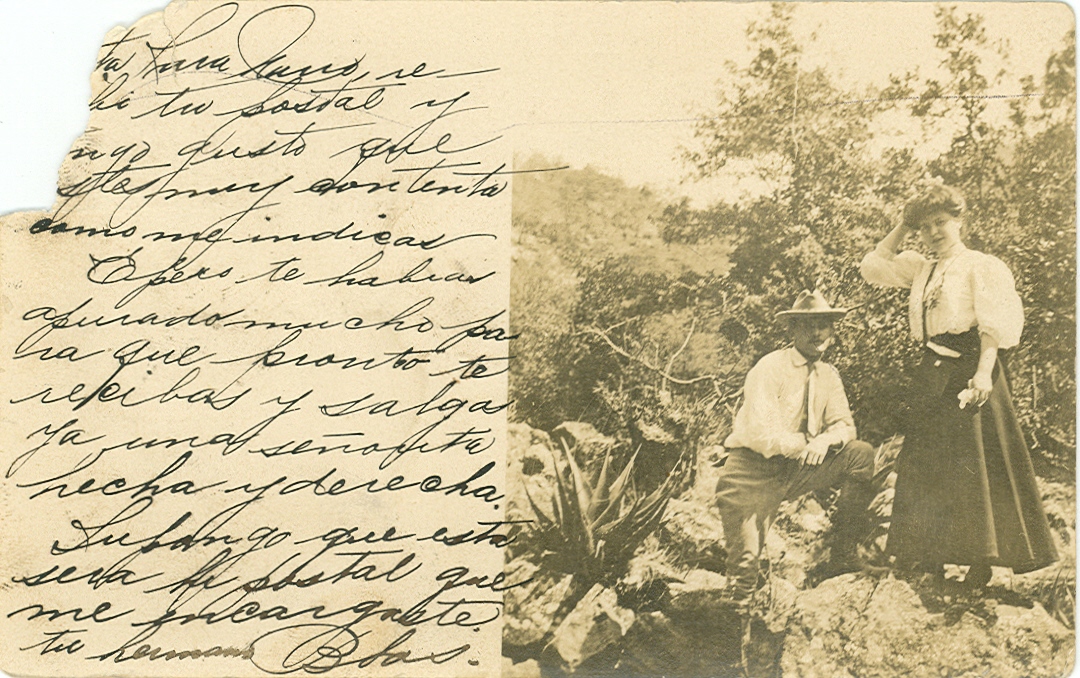 ta Lura Nuño, re-
bi tu postal y
ngo gusto que
stes muy contenta
como me indicas
Espero te habias
apurado mucho pa
ra que pronto te
recibas y salgas
ya una señorita
hecha y derecha.
Supongo que esta
sera la postal que
me encargaste.
tu hermano Blas.